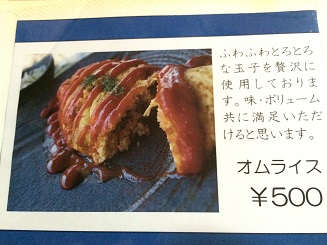 ふわふわとろとろ
な玉子を贅沢に
使用しておりま
す。味・ボリューム
共に満足いただ
けると思います。
オムライス
￥500